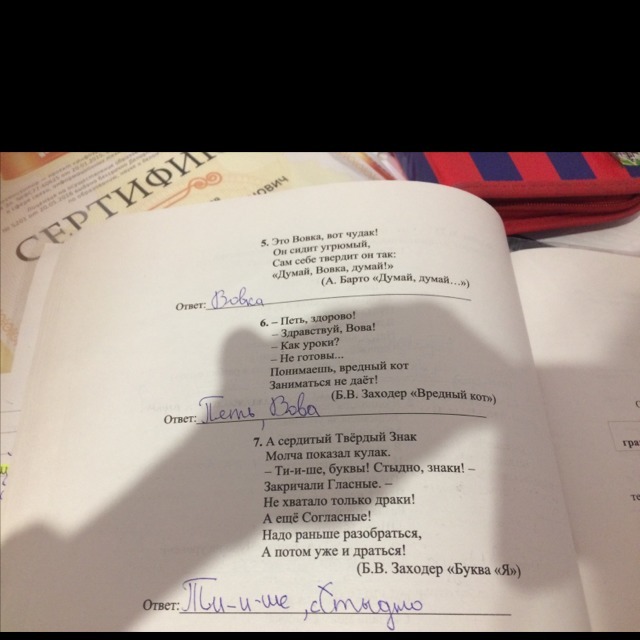 СЕРТИФИ
ОВИЧ
5. Это Вовка, вот чудак!
Он сидит угрюмый,
Сам себе твердит он так:
«Думай, Вовка, думай!»
(А. Барто «Думай, думай...»)
Ответ: Вовка
6. – Петь, здорово!
– Здравствуй, Вова!
– Как уроки?
– Не готовы...
Понимаешь, вредный кот
Заниматься не даёт!
(Б.В. Заходер «Вредный кот»)
Ответ: Петь, Вова
7. А сердитый Твёрдый Знак
Молча показал кулак.
– Ти-и-ше, буквы! Стыдно, знаки! –
Закричали Гласные. –
Не хватало только драки!
А ещё Согласные!
Надо раньше разобраться,
А потом уже и драться!
(Б.В. Заходер «Буква «Я»)
Ответ: Ти-и-ше, стыдно